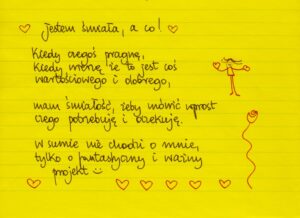 jestem śmiała, a co!
Kiedy czegoś pragnę,
kiedy wierzę że to jest coś
wartościowego i dobrego,
mam śmiałość, żeby mówić wprost
czego potrzebuję i oczekuję.
w sumie nie chodzi o mnie,
tylko o fantastyczny i ważny
projekt